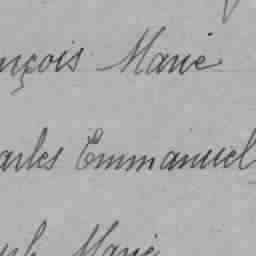 nçois Marie
arles Emmanuel
ph Marie